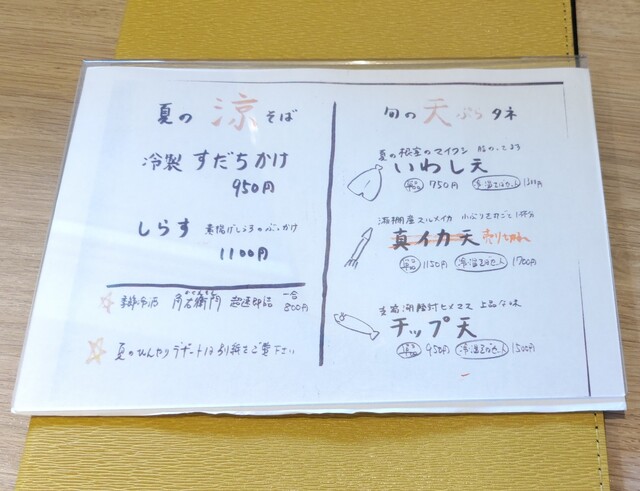 夏の 涼 そば
冷製 すだちかけ
950円
しらす 素揚げしらすのぶっかけ
1100円
角右衛門 一合
800円
夏のひんやりデザートは別紙をご覧下さい
旬の 天ぷら タネ
夏の根室のマイワシ 脂のってます
いわし天
単品 750円 冷温そば入 1300円
スルメイカ 小ぶりを丸ごと1杯分
真イカ天 売り切れ
単品 1150円 冷温そば入 1700円
支笏湖 ヒメマス 上品な味
チップ天
単品 950円 冷温そば入 1500円